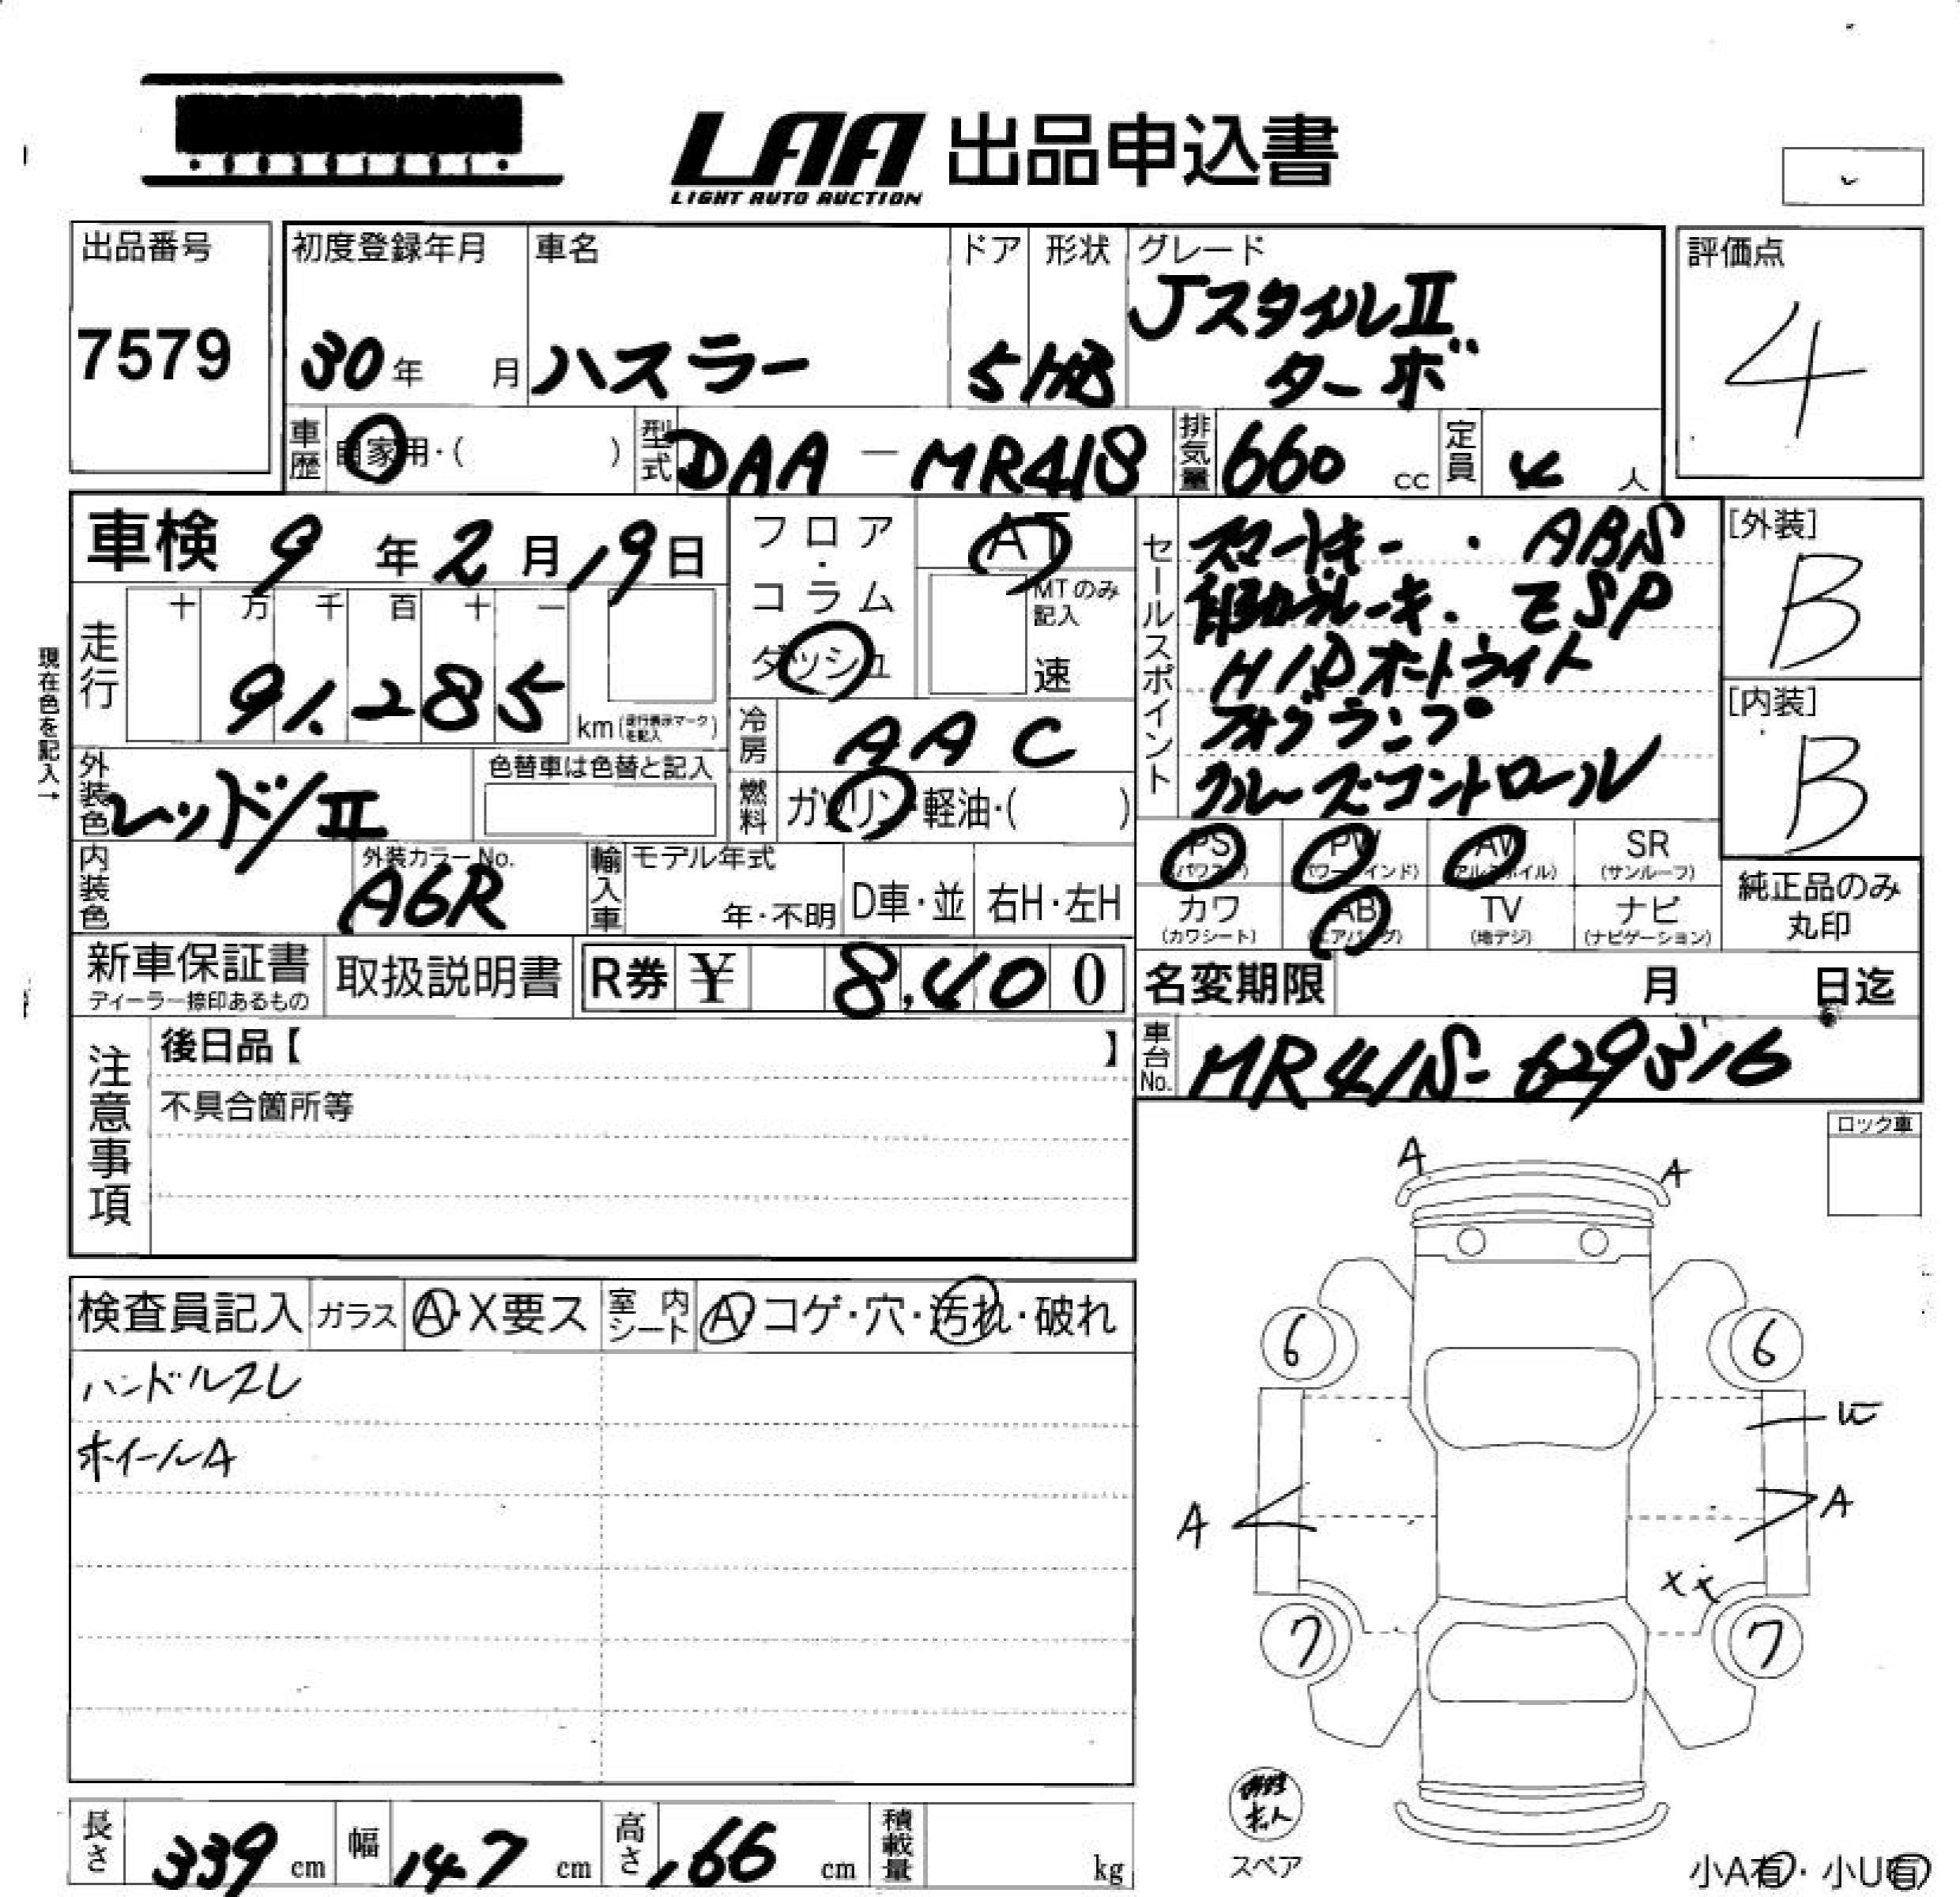 LAA 出品申込書
LIGHT AUTO AUCTION
出品番号
7579
初度登録年月
30年 月
車名
ハスラー
ドア
5
形状
HB
グレード
JスタイルⅡ
ターボ
評価点
4
車歴 自家用・( )
型式 DAA-MR41S
排気量 660 cc
定員 4 人
車検 9年2月19日
フロア・コラム ダッシュ
AT
MTのみ記入
速
現在色を記入→
走行 十 万 千 百 十 一
91,285 km(走行表示マークを記入)
冷房 AAC
外装色 レッド/Ⅱ
色替車は色替と記入
燃料 ガソリン・軽油・( )
内装色
外装カラーNo.
A6R
輸入車 モデル年式
年・不明 D車・並 右H・左H
セールスポイント
スマートキー・ABS
自動ブレーキ・ESP
HIDオートライト
フォグランプ
クルーズコントロール
[外装]
B
[内装]
B
PS (パワステ) PW (パワーウインド) AW (アルミホイル) SR (サンルーフ)
カワ (カワシート) AB (エアバッグ) TV (地デジ) ナビ (ナビゲーション)
純正品のみ丸印
新車保証書 ディーラー捺印あるもの
取扱説明書
R券 ¥ 8,400
名変期限 月 日迄
車台No. MR41S-629316
注意事項
後日品【 】
不具合箇所等
ロック車
検査員記入 ガラス A・X要ス 室内シート A・コゲ・穴・汚れ・破れ
ハンドルスレ
ホイールA
A A
6 6
A A
7 7
スペア
小A有・小U有
長さ 339 cm
幅 147 cm
高さ 166 cm
積載量 kg